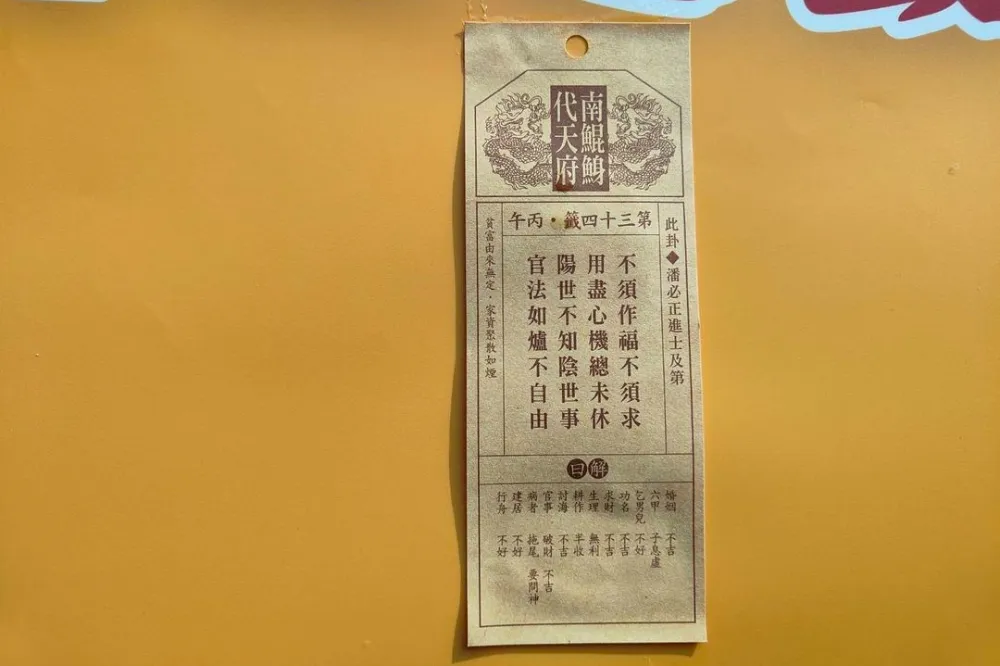 南鯤鯓
代天府
第三十四籤・丙午
此卦◆潘必正進士及第
不須作福不須求
用盡心機總未休
陽世不知陰世事
官法如爐不自由
貧富由來無定・家資聚散如煙
解曰
婚姻 不吉
六甲 子息虛
乞男兒 不好
功名 不吉
求財 不吉
生理 無利
耕作 半收
討海 不吉
官事 破財 不吉
病者 拖尾 要問神
建居 不好
行舟 不好